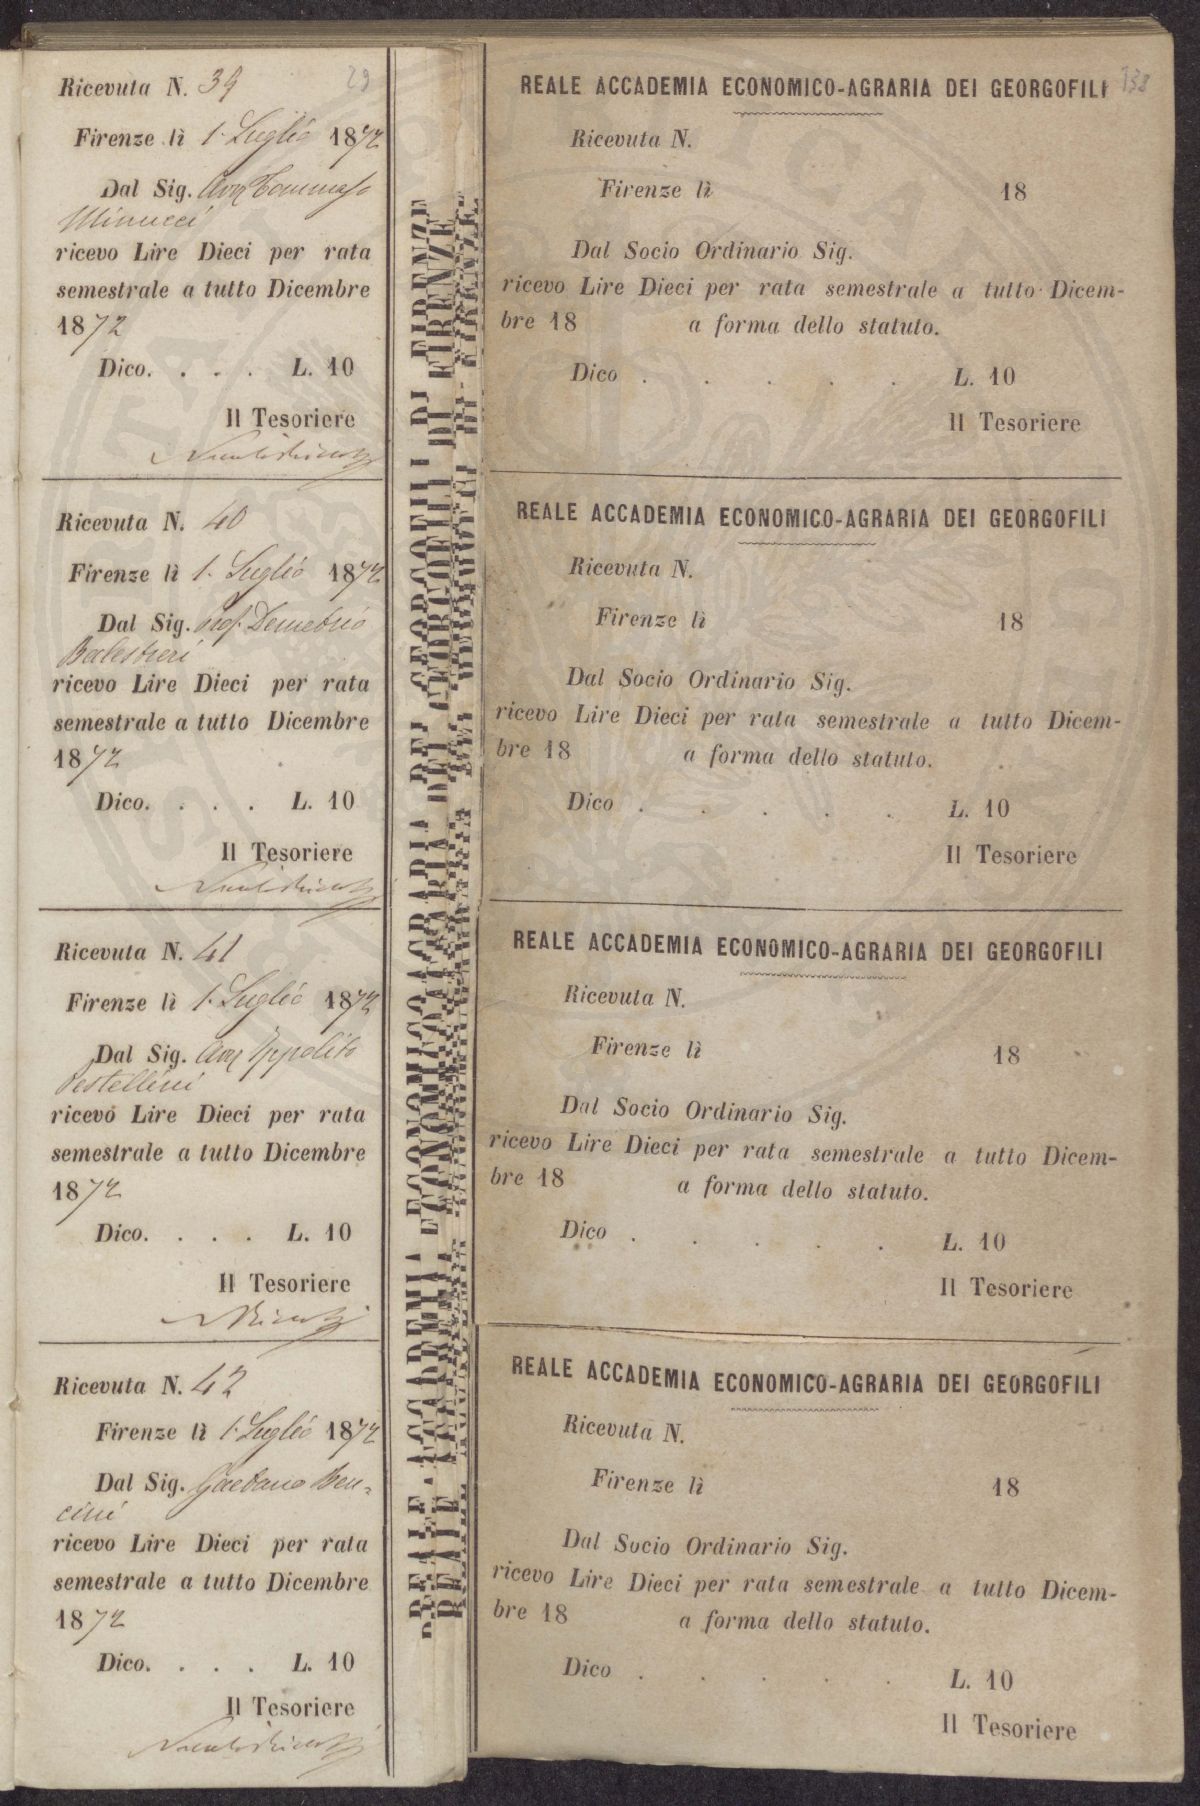 Ricevuta N. 39
29
Firenze lì 1. Luglio 1872
Dal Sig. Avv Tommaso
Minucci
ricevo Lire Dieci per rata
semestrale a tutto Dicembre
1872
Dico. . . . L. 10
Il Tesoriere
Ricevuta N. 40
Firenze lì 1. Luglio 1872
Dal Sig. Prof. Demetrio
Balestrieri
ricevo Lire Dieci per rata
semestrale a tutto Dicembre
1872
Dico. . . . L. 10
Il Tesoriere
Ricevuta N. 41
Firenze lì 1. Luglio 1872
Dal Sig. Avv Ippolito
Pestellini
ricevo Lire Dieci per rata
semestrale a tutto Dicembre
1872
Dico. . . . L. 10
Il Tesoriere
Ricevuta N. 42
Firenze lì 1. Luglio 1872
Dal Sig. Gaetano Ben=
cini
ricevo Lire Dieci per rata
semestrale a tutto Dicembre
1872
Dico. . . . L. 10
Il Tesoriere
REALE ACCADEMIA ECONOMICO-AGRARIA DEI GEORGOFILI DI FIRENZE
REALE ACCADEMIA ECONOMICO-AGRARIA DEI GEORGOFILI
138
Ricevuta N.
Firenze lì 18
Dal Socio Ordinario Sig.
ricevo Lire Dieci per rata semestrale a tutto Dicem-
bre 18 a forma dello statuto.
Dico . . . . . L. 10
Il Tesoriere
REALE ACCADEMIA ECONOMICO-AGRARIA DEI GEORGOFILI
Ricevuta N.
Firenze lì 18
Dal Socio Ordinario Sig.
ricevo Lire Dieci per rata semestrale a tutto Dicem-
bre 18 a forma dello statuto.
Dico . . . . . L. 10
Il Tesoriere
REALE ACCADEMIA ECONOMICO-AGRARIA DEI GEORGOFILI
Ricevuta N.
Firenze lì 18
Dal Socio Ordinario Sig.
ricevo Lire Dieci per rata semestrale a tutto Dicem-
bre 18 a forma dello statuto.
Dico . . . . . L. 10
Il Tesoriere
REALE ACCADEMIA ECONOMICO-AGRARIA DEI GEORGOFILI
Ricevuta N.
Firenze lì 18
Dal Socio Ordinario Sig.
ricevo Lire Dieci per rata semestrale a tutto Dicem-
bre 18 a forma dello statuto.
Dico . . . . . L. 10
Il Tesoriere